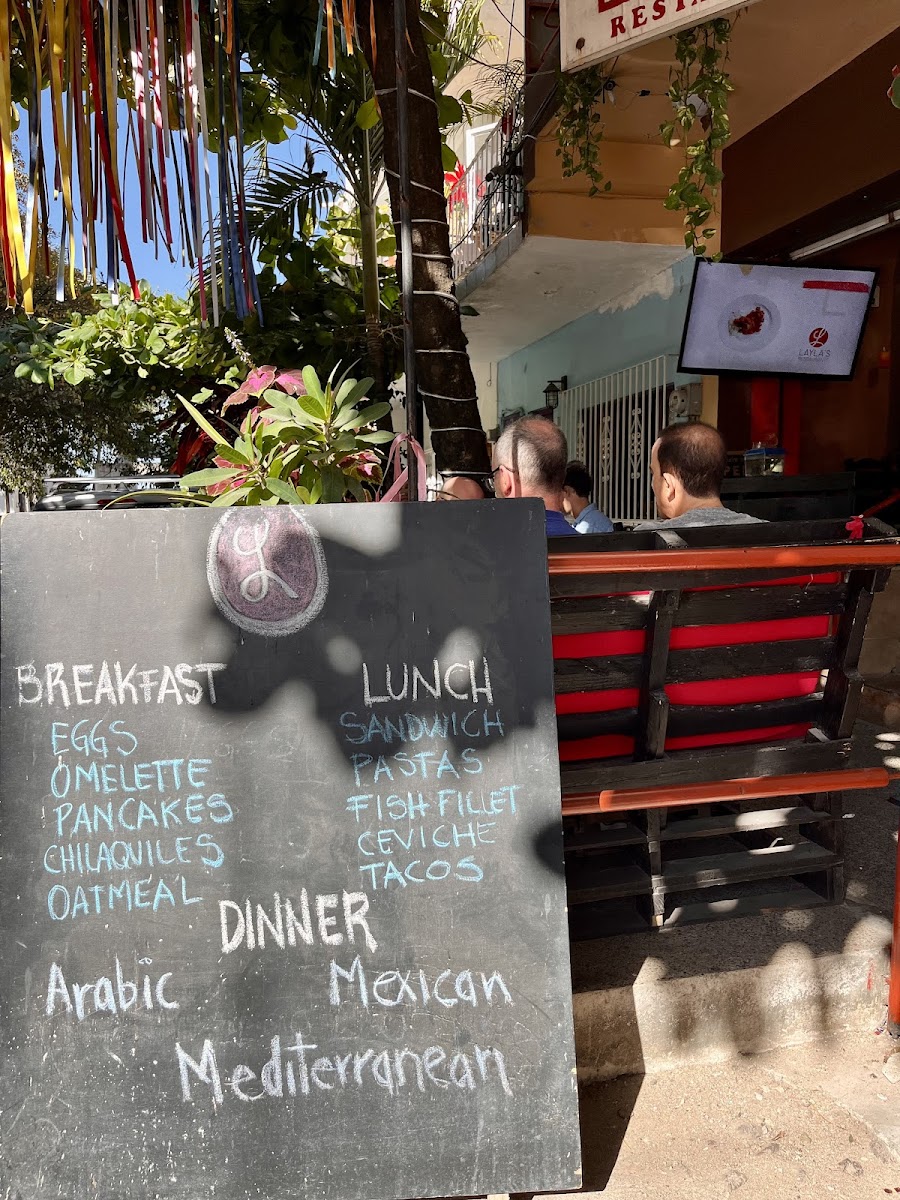 RESTA
LAYLA'S
L
BREAKFAST
EGGS
OMELETTE
PANCAKES
CHILAQUILES
OATMEAL
LUNCH
SANDWICH
PASTAS
FISH FILLET
CEVICHE
TACOS
DINNER
Arabic
Mexican
Mediterranean